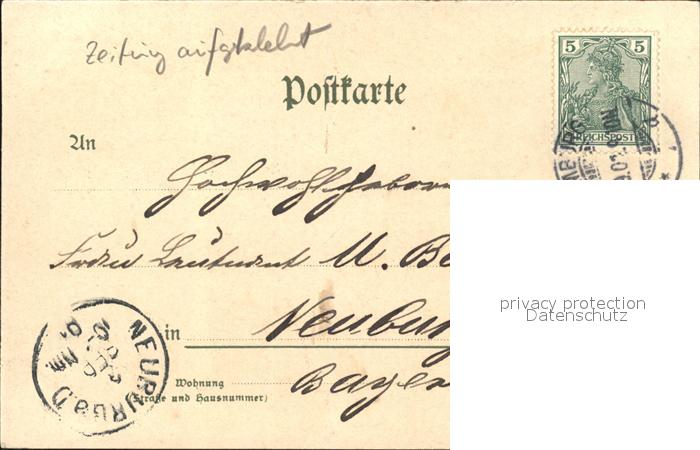 Zeitung aufgeklebt
5 5
REICHSPOST
Postkarte
An
Hochwohlgeboren
Frau Leutnant M. Be
in Neuburg
Bayer
Wohnung
(Straße und Hausnummer)
NEUBURG a/D
SEP
NM
privacy protection
Datenschutz